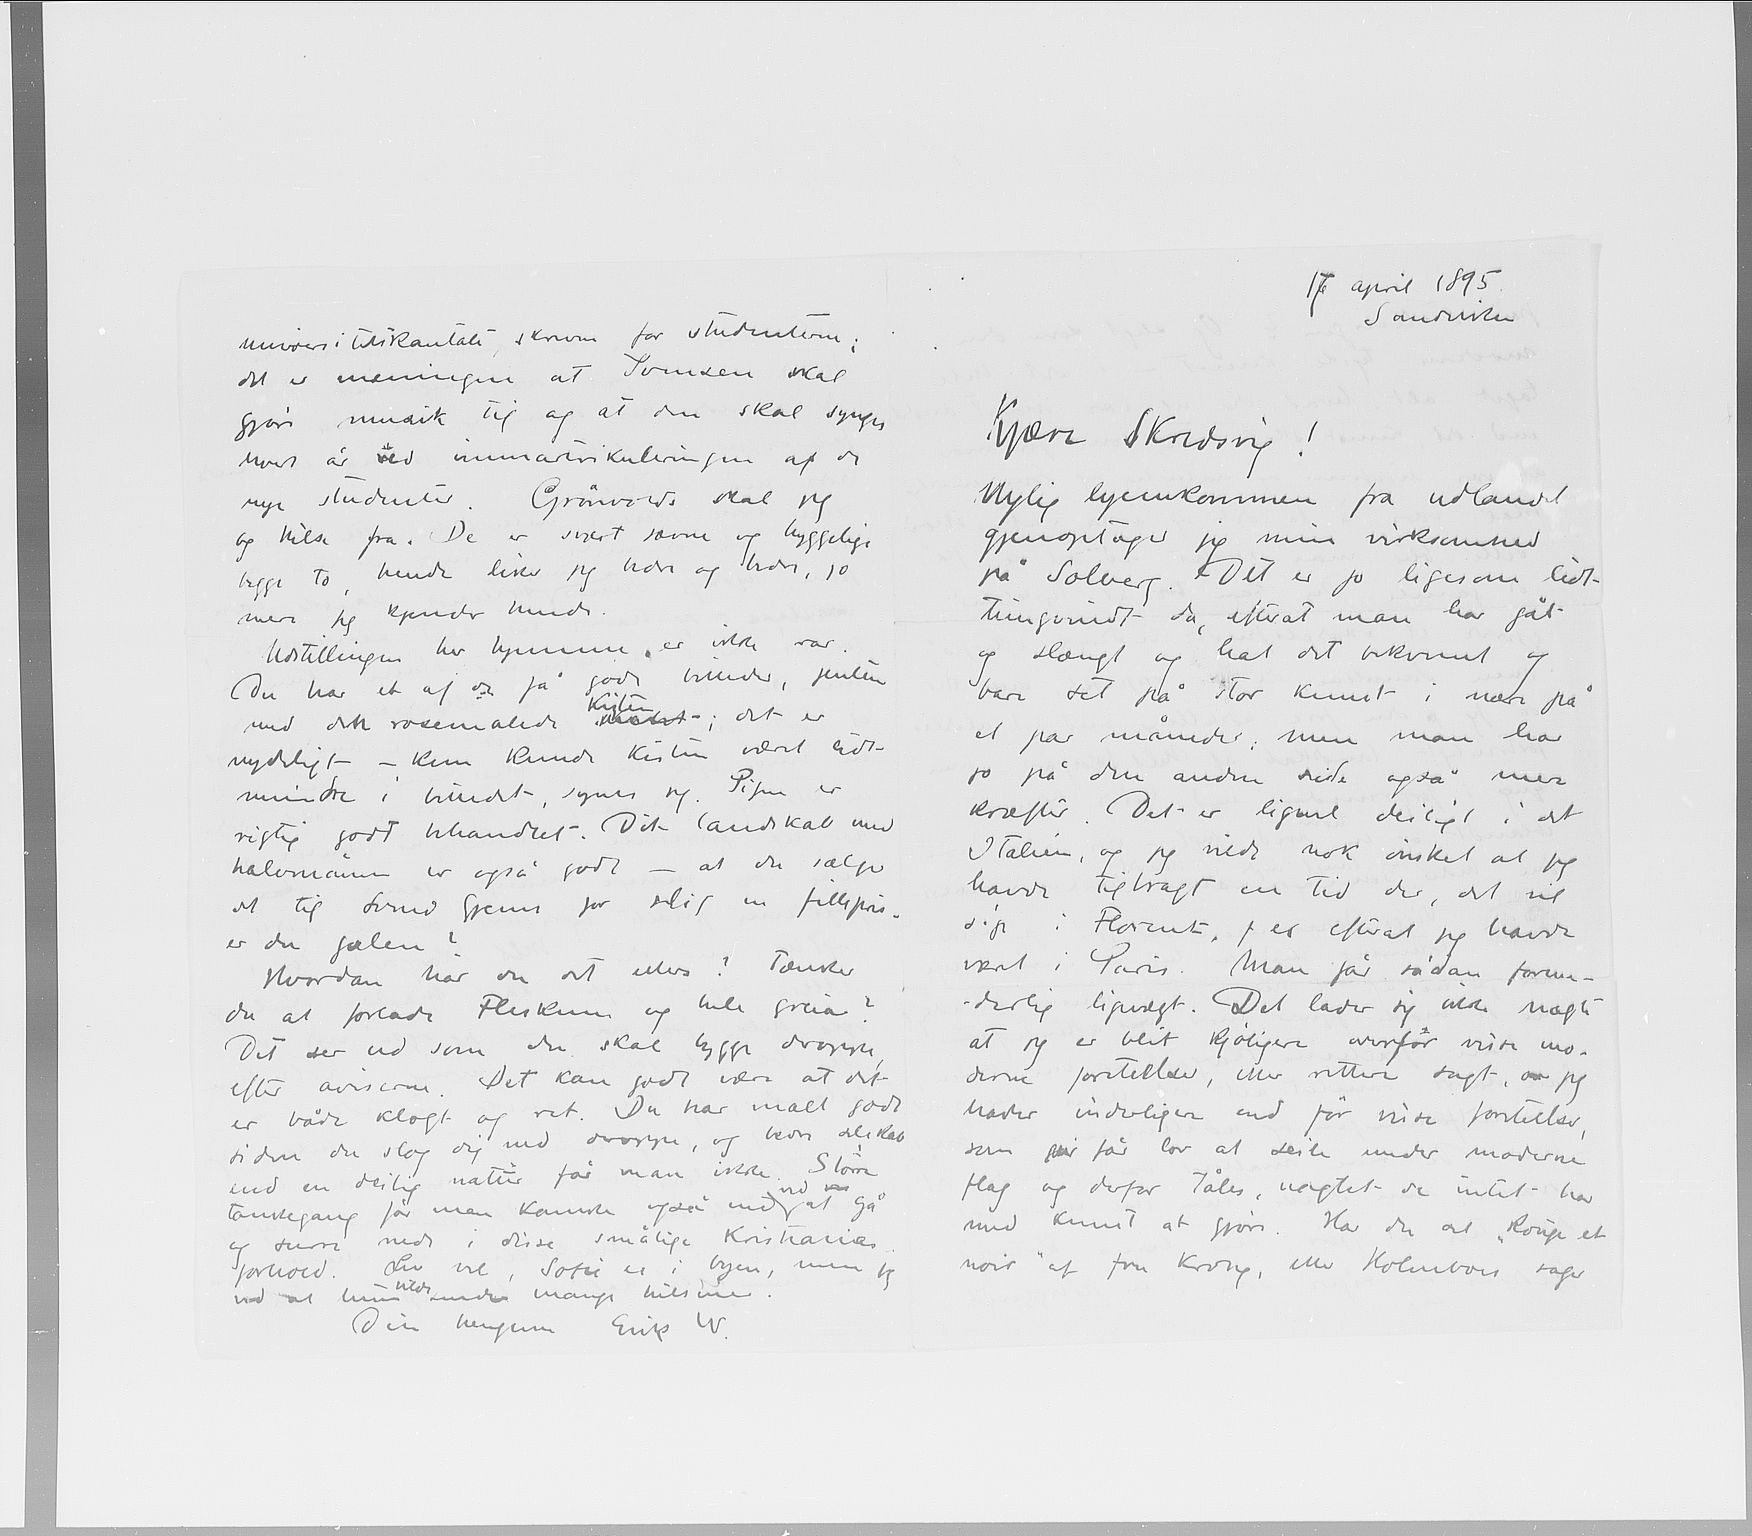 17 april 1895.
Sandviken
Kjære Skredsvig!
Nylig hjemkommen fra udlandet
gjenoptager jeg min virksomhed
på Solberg. Det er jo ligesom lidt
tungvindt da, efterat man har gåt
og slængt og hat det bekvemt og
bare set på stor kunst i nære på
et par måneder; men man har
jo på den anden side også mere
kræfter. Det er ligevel deiligt i det
Italien, og jeg vilde nok ønsket at jeg
havde tilbragt en tid der, det vil
sige i Florents, før efterat jeg havde
været i Paris. Man får sådan forun-
-derlig ligevægt. Det lader sig ikke nægte
at jeg er blit kjøligere overfor visse mo-
derne foreteelser, eller rettere sagt, jeg
hader inderligere end før visse foreteelser,
som får lov at seile under moderne
flag og derfor tåles, uagtet de intet har
med kunst at gjøre. Har du set "Rouge et
noir" af fru Krohg, eller Holmboes sager
universitetskantate, skreven for studenterne;
det er meningen at Svendsen skal
gjøre musik til og at den skal synges
hvert år ved immatrikuleringen af de
nye studenter. Grönvolds skal jeg
og hilse fra. De er svært søvne og hyggelige
begge to, hende liker jeg bedre og bedre, jo
mere jeg kjender hende.
Udstillingen her hjemme er ikke rar.
Du har et af de få gode billeder, jenten
med den rosemalede kisten; det er
nydeligt – kun kunde kisten været lidt
mindre i billedet, synes jeg. Pigen er
rigtig godt behandlet. Dit landskab med
halvmånen er også godt – at du sælger
det til Svend Gjems for slig en fillepris.
er du galen?
Hvordan har du det ellers? Tænker
du at forlade Fleskum og hele greia?
Det ser ud som du skal bygge deroppe,
efter aviserne. Det kan godt være at det
er både klogt og ret. Du har malt godt
siden du slog dig ned deroppe, og bedre selskab
end en deilig natur får man ikke. Større
tankegang får man kanske også end ved at gå
og surre nede i disse smålige Kristiania-
forhold. Lev vel, Sofie er i byen, men jeg
ved at hun vilde sende mange hilsener.
Din hengivne Erik W.